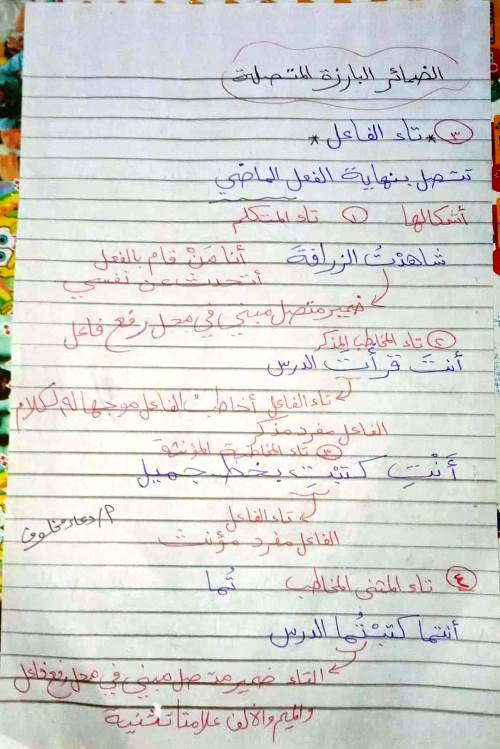 الضمائر البارزة المتصلة
٣ * تاء الفاعل *
تتصل بنهاية الفعل الماضي
أشكالها ① تاء المتكلم
شاهدْتُ الزرافةَ أنا مَنْ قام بالفعل
أتحدث عن نفسي
ضمير متصل مبني في محل رفع فاعل
② تاء المخاطب المذكر
أنتَ قرأْتَ الدرس
تاء الفاعل أخاطب الفاعل موجها له الكلام
الفاعل مفرد مذكر
③ تاء المخاطبة المؤنثة
أَنْتِ كتبْتِ بخط جميل
تاء الفاعل
الفاعل مفرد مؤنث
م/دعاء مخلوف
④ تاء المثنى المخاطب تُما
أنتما كتبْتُما الدرس
التاء ضمير متصل مبني في محل رفع فاعل
والميم والألف علامتا تثنية